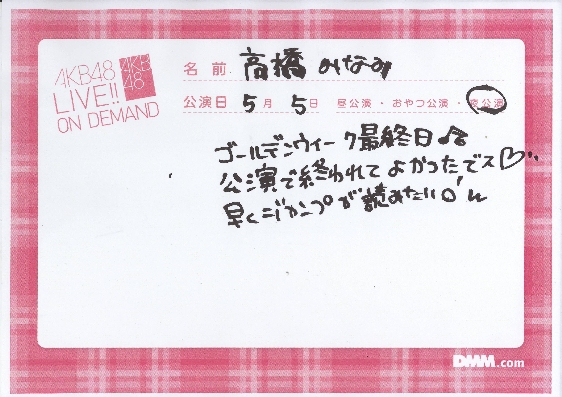 AKB48
LIVE!!
ON DEMAND
AKB
48
名前 高橋みなみ
公演日 5月 5日 昼公演・おやつ公演・夜公演
ゴールデンウィーク最終日♪
公演で終われてよかったでス♡
早くジャンプが読みたい
DMM.com